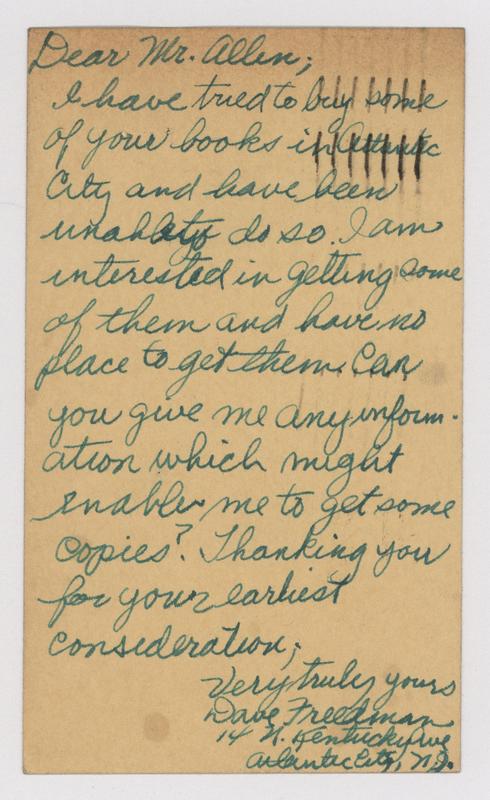 Dear Mr. Allen;
I have tried to buy some
of your books in Atlantic
City and have been
unable to do so. I am
interested in getting some
of them and have no
place to get them. Can
you give me any inform-
ation which might
enable me to get some
copies? Thanking you
for your earliest
consideration;
Very truly yours
Dave Freedman
14 N. Kentucky Ave
Atlantic City, N.J.